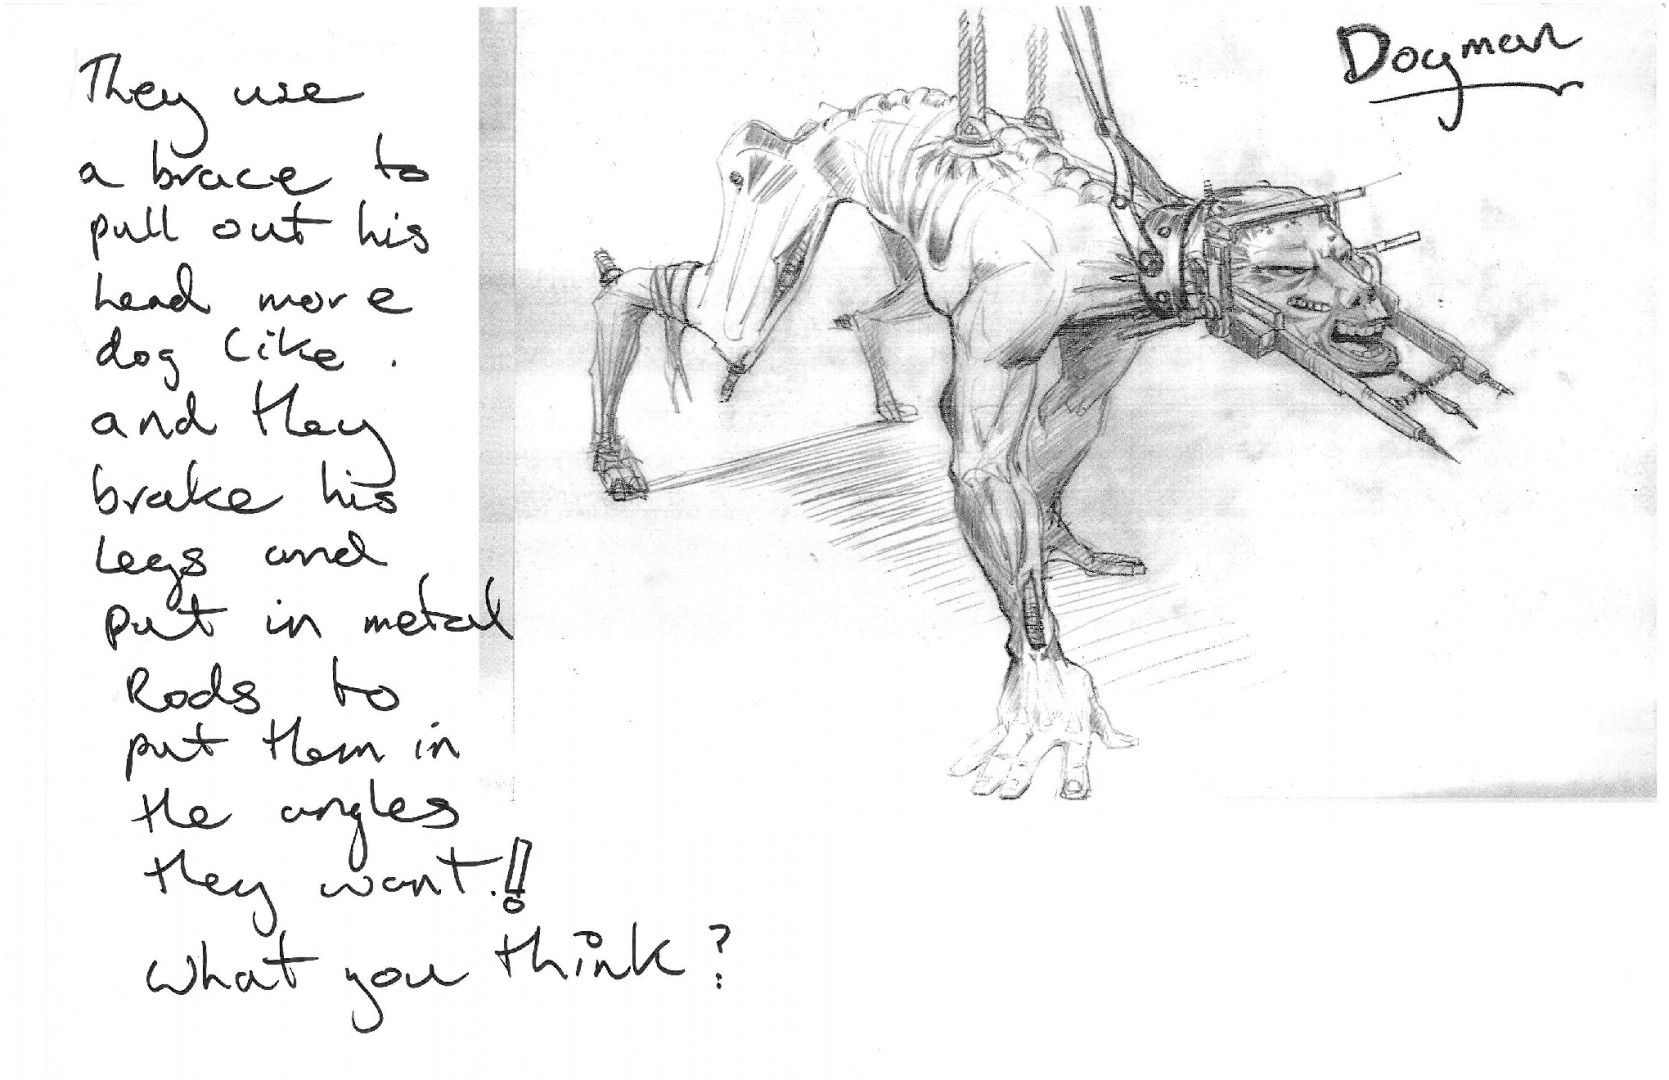 Dogman
They use
a brace to
pull out his
head more
dog like.
and they
brake his
Legs and
put in metal
Rods to
put them in
the angles
they want!!
what you think?